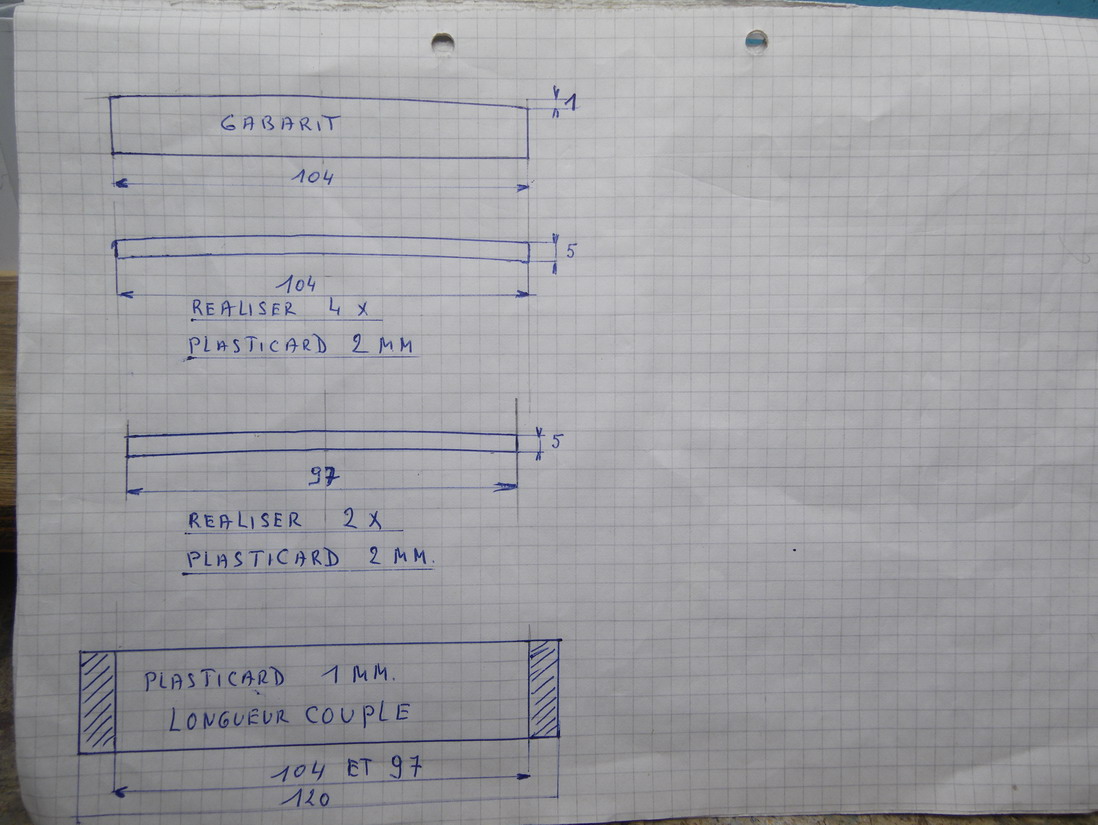 1
GABARIT
104
5
104
REALISER 4 X
PLASTICARD 2 MM
5
97
REALISER 2 X
PLASTICARD 2 MM.
PLASTICARD 1 MM.
LONGUEUR COUPLE
104 ET 97
120